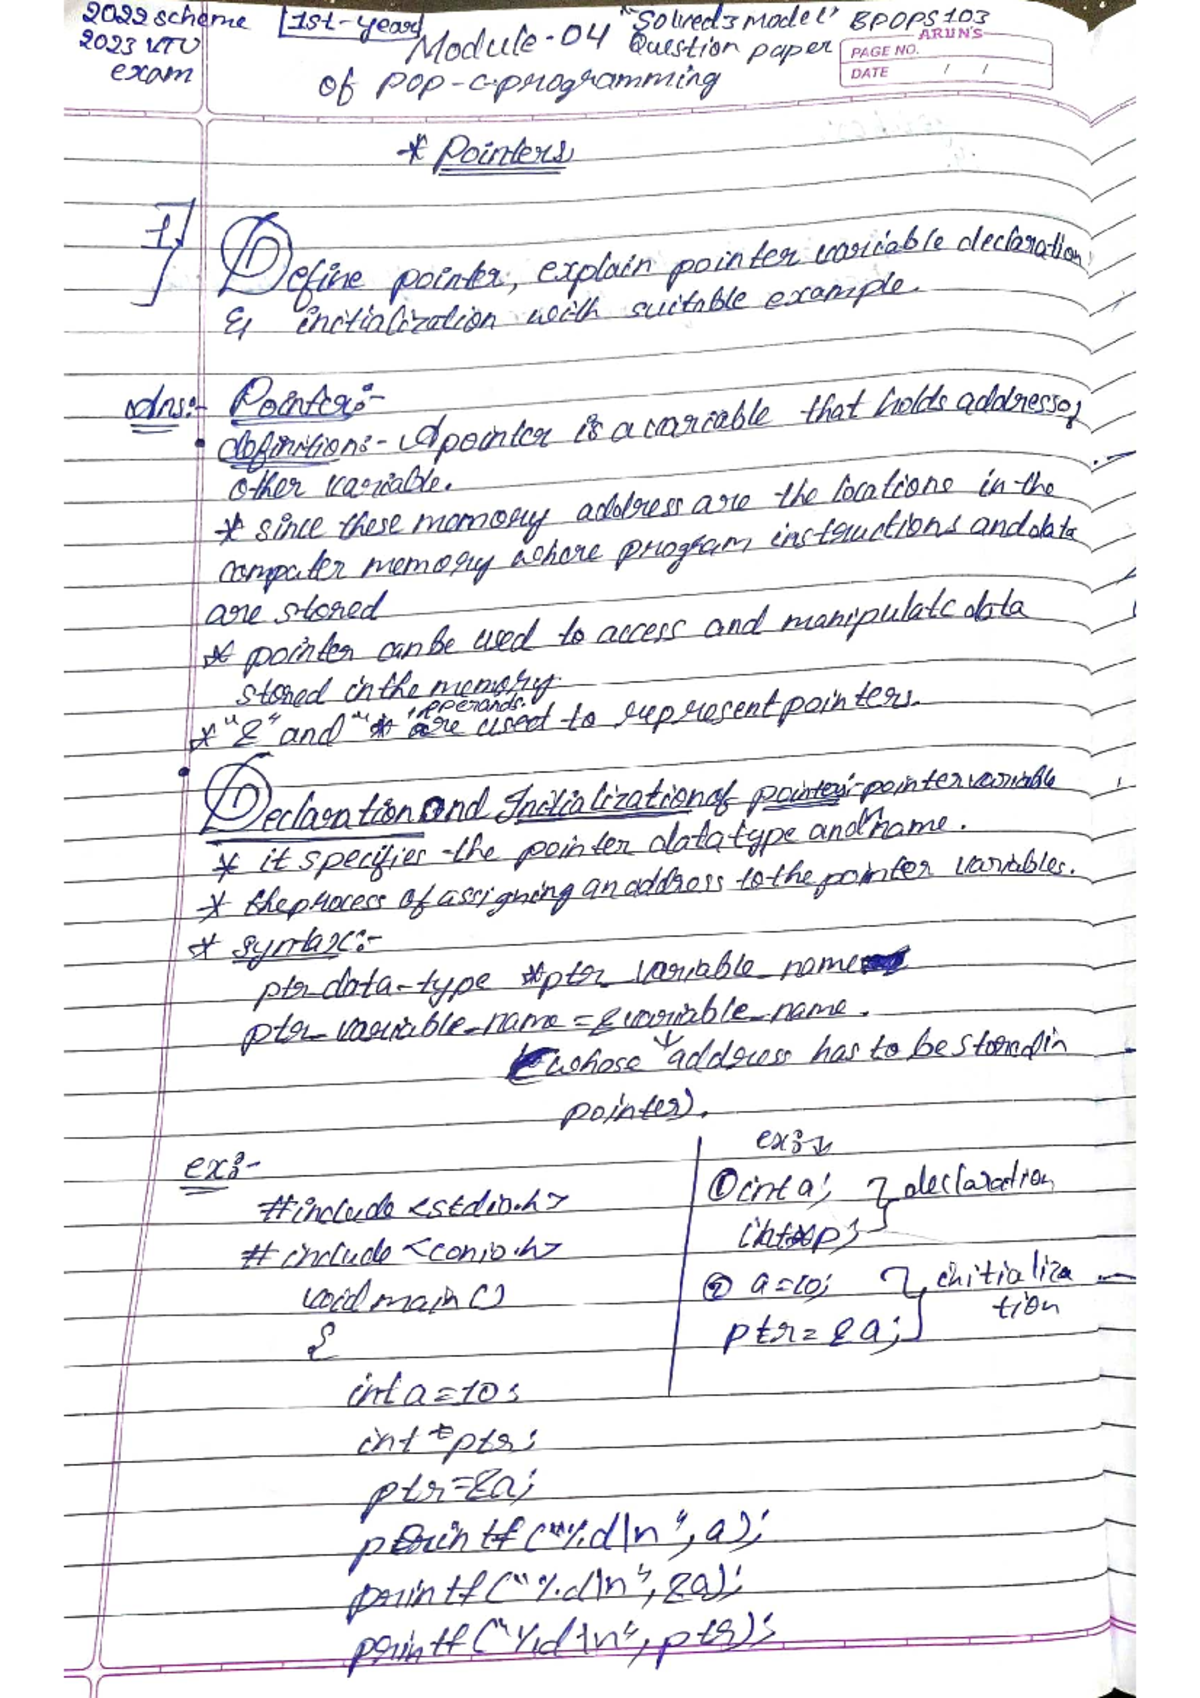 2022 scheme [1st-year] "Solved 3 model" BPOPS103
2023 VTU Module-04 Question paper
exam of POP-C-programming
ARUN'S
PAGE NO.
DATE / /
* Pointers
1] Define pointer, explain pointer variable declaration
& initialization with suitable example.
Ans:- Pointer:-
• definition:- A pointer is a variable that holds address of
other variable.
* since these memory address are the locations in the
computer memory where program, instructions and data
are stored
* pointer can be used to access and manipulate data
stored in the memory.
* "&" and "*" opperands. are used to represent pointers.
• Declaration and Initialization of pointer:- pointer variable
* it specifies the pointer data type and name.
* the process of assigning an address to the pointer variables.
* syntax:-
ptr_data-type *ptr_variable_name
ptr_variable_name = & variable_name.
(whose address has to be stored in
pointer).
ex:-
#include <stdio.h>
#include <conio.h>
void main()
{
int a=10;
int *ptr;
ptr=&a;
printf("%d\n", a);
printf("%d\n", &a);
printf("%d\n", ptr);
ex:- ↓
① int a; } declaration
int*p;
② a=10; } initializa
tion
ptr=&a;